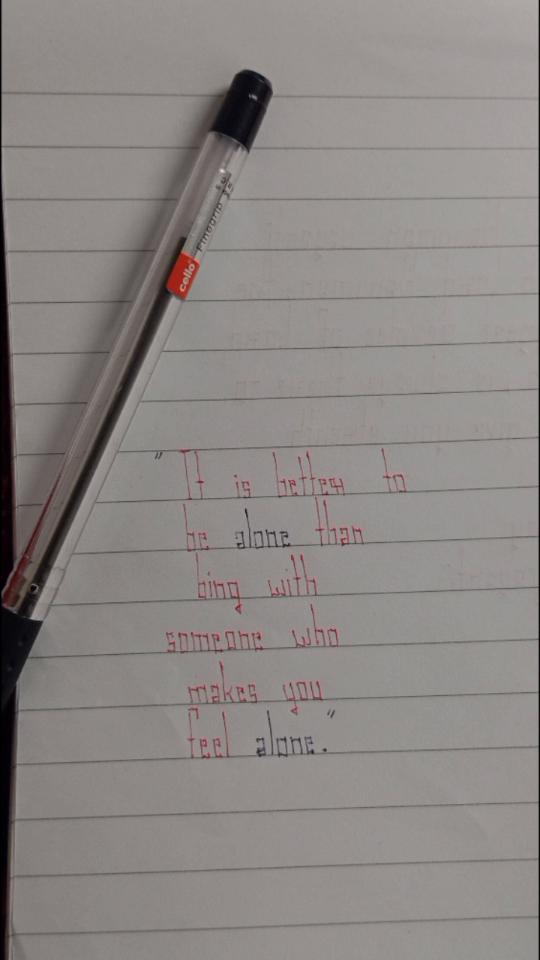 cello Finegrip
"It is better to
be alone than
bing with
someone who
makes you
feel alone."